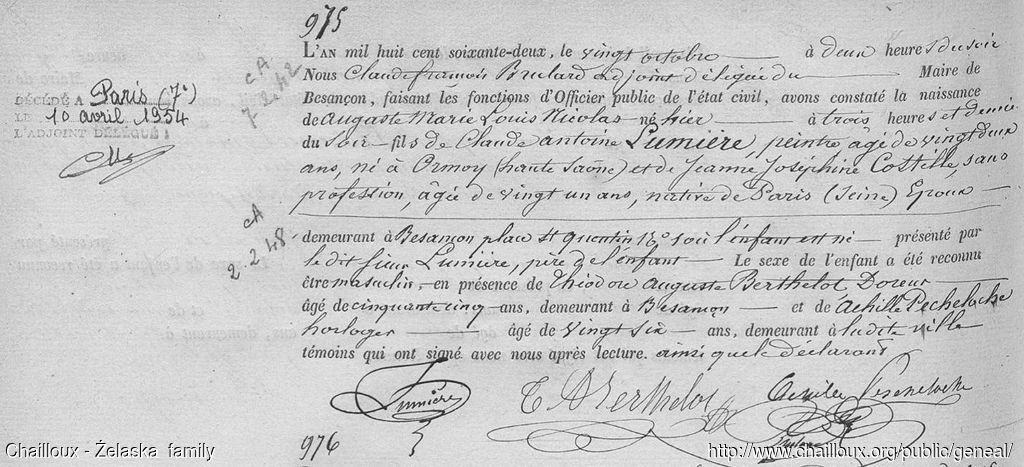 975
L'AN mil huit cent soixante-deux, le vingt octobre à deux heures du soir
Nous Claude françois Brulard adjoint délégué du Maire de
Besançon, faisant les fonctions d'Officier public de l'état civil, avons constaté la naissance
de Auguste Marie Louis Nicolas né hier à trois heures et demie
du soir fils de Claude antoine Lumière, peintre âgé de vingt deux
ans, né à Ormoy (haute Saône) et de Jeanne Joséphine Costille, sans
profession, âgée de vingt un ans, native de Paris (Seine) Epoux
demeurant à Besançon place St Quentin où l'enfant est né présenté par
le dit sieur Lumière, père de l'enfant Le sexe de l'enfant a été reconnu
être masculin, en présence de Théodore Auguste Berthelot Doreur
âgé de cinquante cinq ans, demeurant à Besançon et de Achille
horloger âgé de vingt six ans, demeurant à ladite ville
témoins qui ont signé avec nous après lecture. ainsi que le déclarant
Lumière T A Berthelot
976
DÉCÉDÉ A Paris (7e)
LE 10 avril 1954
L'ADJOINT DÉLÉGUÉ
CA
7.2.42
CA
2.2.48
Chailloux - Żelaska family
http://www.chailloux.org/public/geneal/